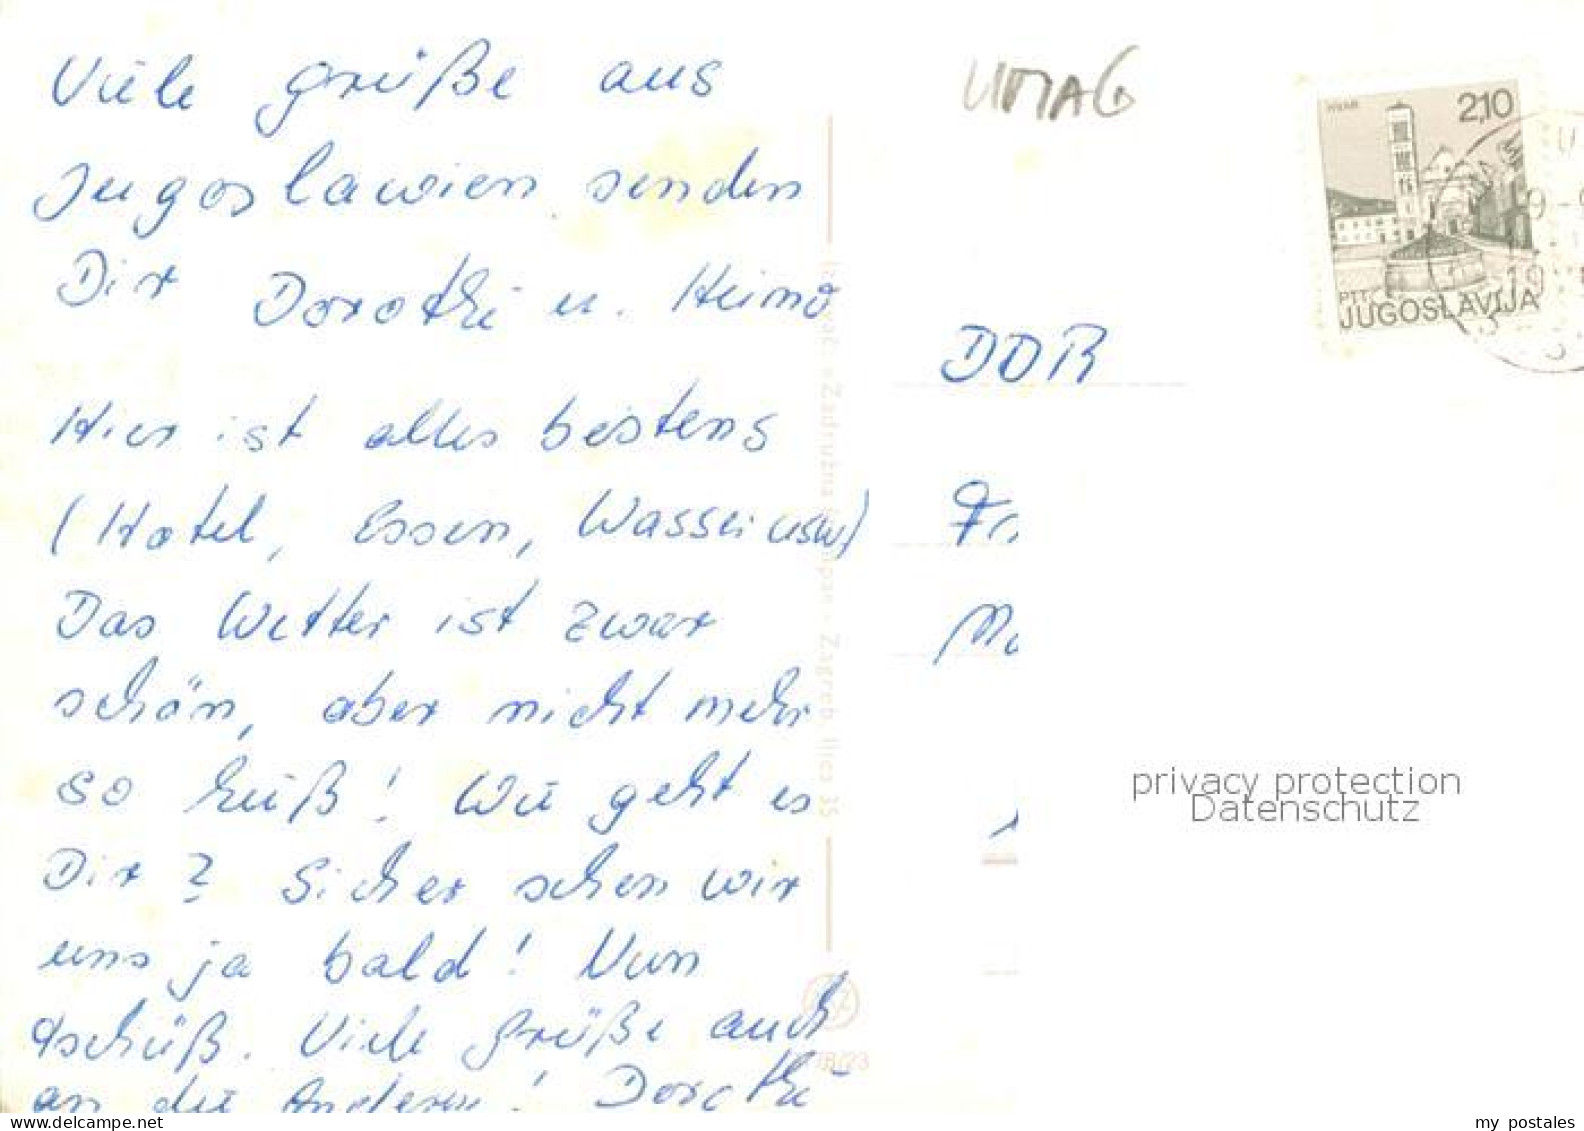 Viele Grüße aus
Jugoslawien senden
Dir Dorothi u. Heino
Hier ist alles bestens
(Hotel, Essen, Wasser usw)
Das Wetter ist zwar
schön, aber nicht mehr
so heiß! Wie geht es
Dir? Sicher sehen wir
uns ja bald! Nun
tschüß. Viele Grüße auch
an die Anderen! Dorothi
UMAG
HVAR
2,10
PTT
JUGOSLAVIJA
DDR
privacy protection
Datenschutz
Zagreb, Ilica 35
my postales
www.delcampe.net